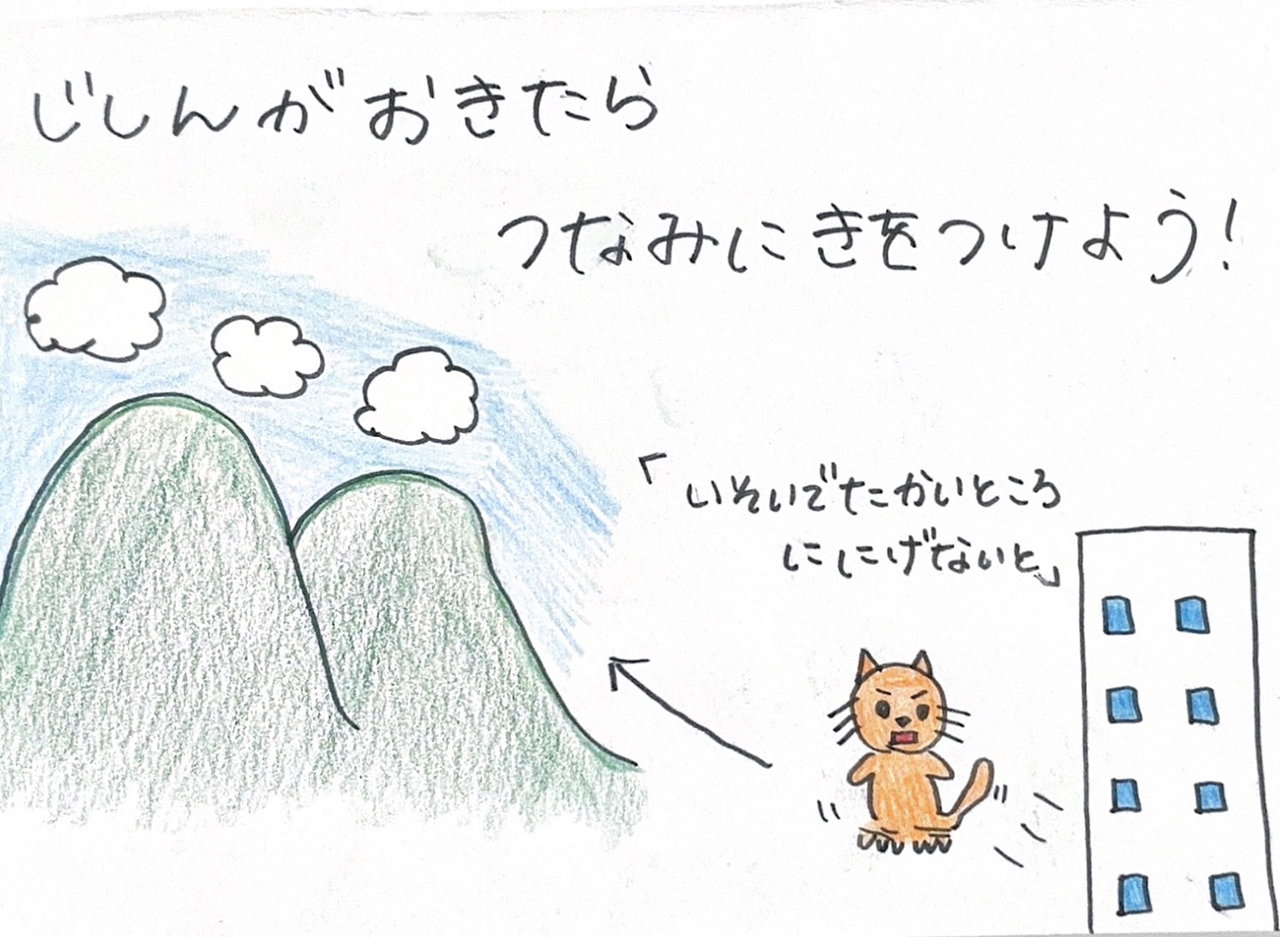 じしんがおきたら
つなみにきをつけよう!
「いそいでたかいところ
ににげないと」